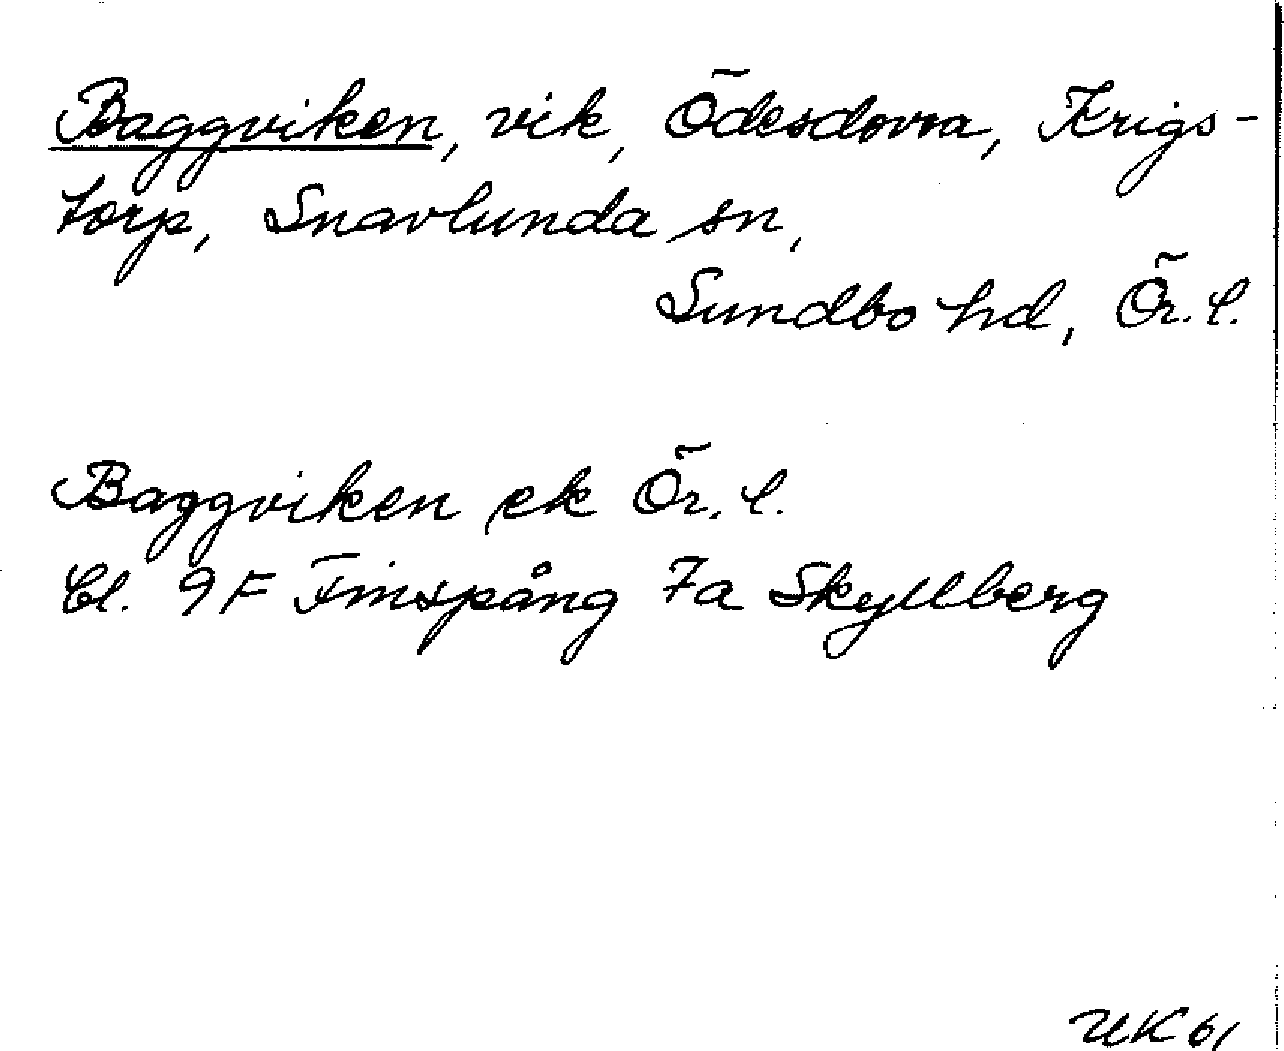 Baggviken, vik, Ödesdovra, Krigs-
torp, Snavlunda sn,
Sundbo hd, Ör. l.
Baggviken ek Ör. l.
Bl. 9F Finspång 7a Skyllberg
UK 61